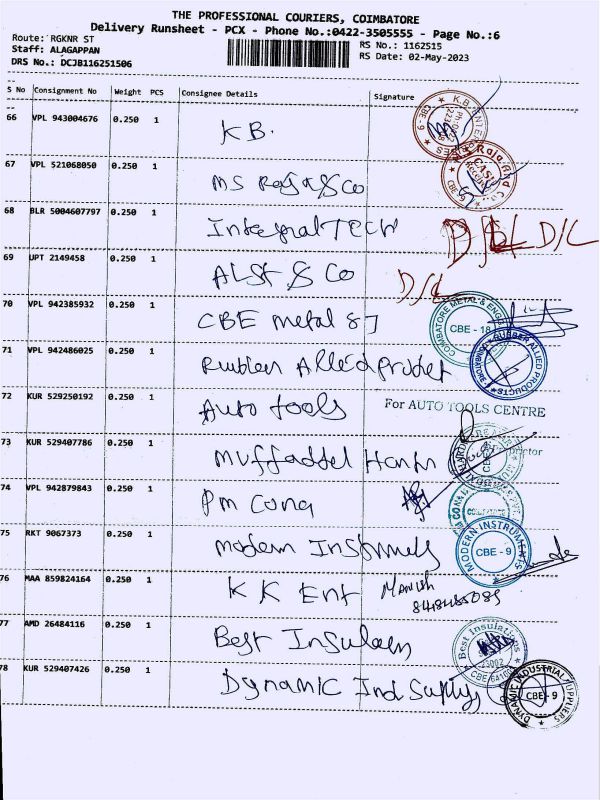 THE PROFESSIONAL COURIERS, COIMBATORE
Delivery Runsheet - PCX - Phone No.:0422-3505555 - Page No.:6
Route: RGKNR ST RS No.: 1162515
Staff: ALAGAPPAN RS Date: 02-May-2023
DRS No.: DCJB116251506
S No Consignment No Weight PCS Consignee Details Signature
66 VPL 943004676 0.250 1 K.B.
67 VPL 521068050 0.250 1 MS Raja & Co
68 BLR 5004607797 0.250 1 Integral TECH D/L D/L
69 UPT 2149458 0.250 1 ALSt & Co D/L
70 VPL 942385932 0.250 1 CBE metal CBE - 18
71 VPL 942486025 0.250 1 Rubber Allied RUBBER ALLIED PRODUCTS
72 KUR 529250192 0.250 1 Auto tools For AUTO TOOLS CENTRE
73 KUR 529407786 0.250 1 Muffaddel
74 VPL 942879843 0.250 1 Pm
75 RKT 9067373 0.250 1 modern MODERN INSTRUMENTS CBE - 9
76 MAA 859824164 0.250 1 K K Ent Manish
77 AMD 26484116 0.250 1 Best Best Insulations
78 KUR 529407426 0.250 1 Dynamic Ind DYNAMIC INDUSTRIAL SUPPLIERS CBE - 9